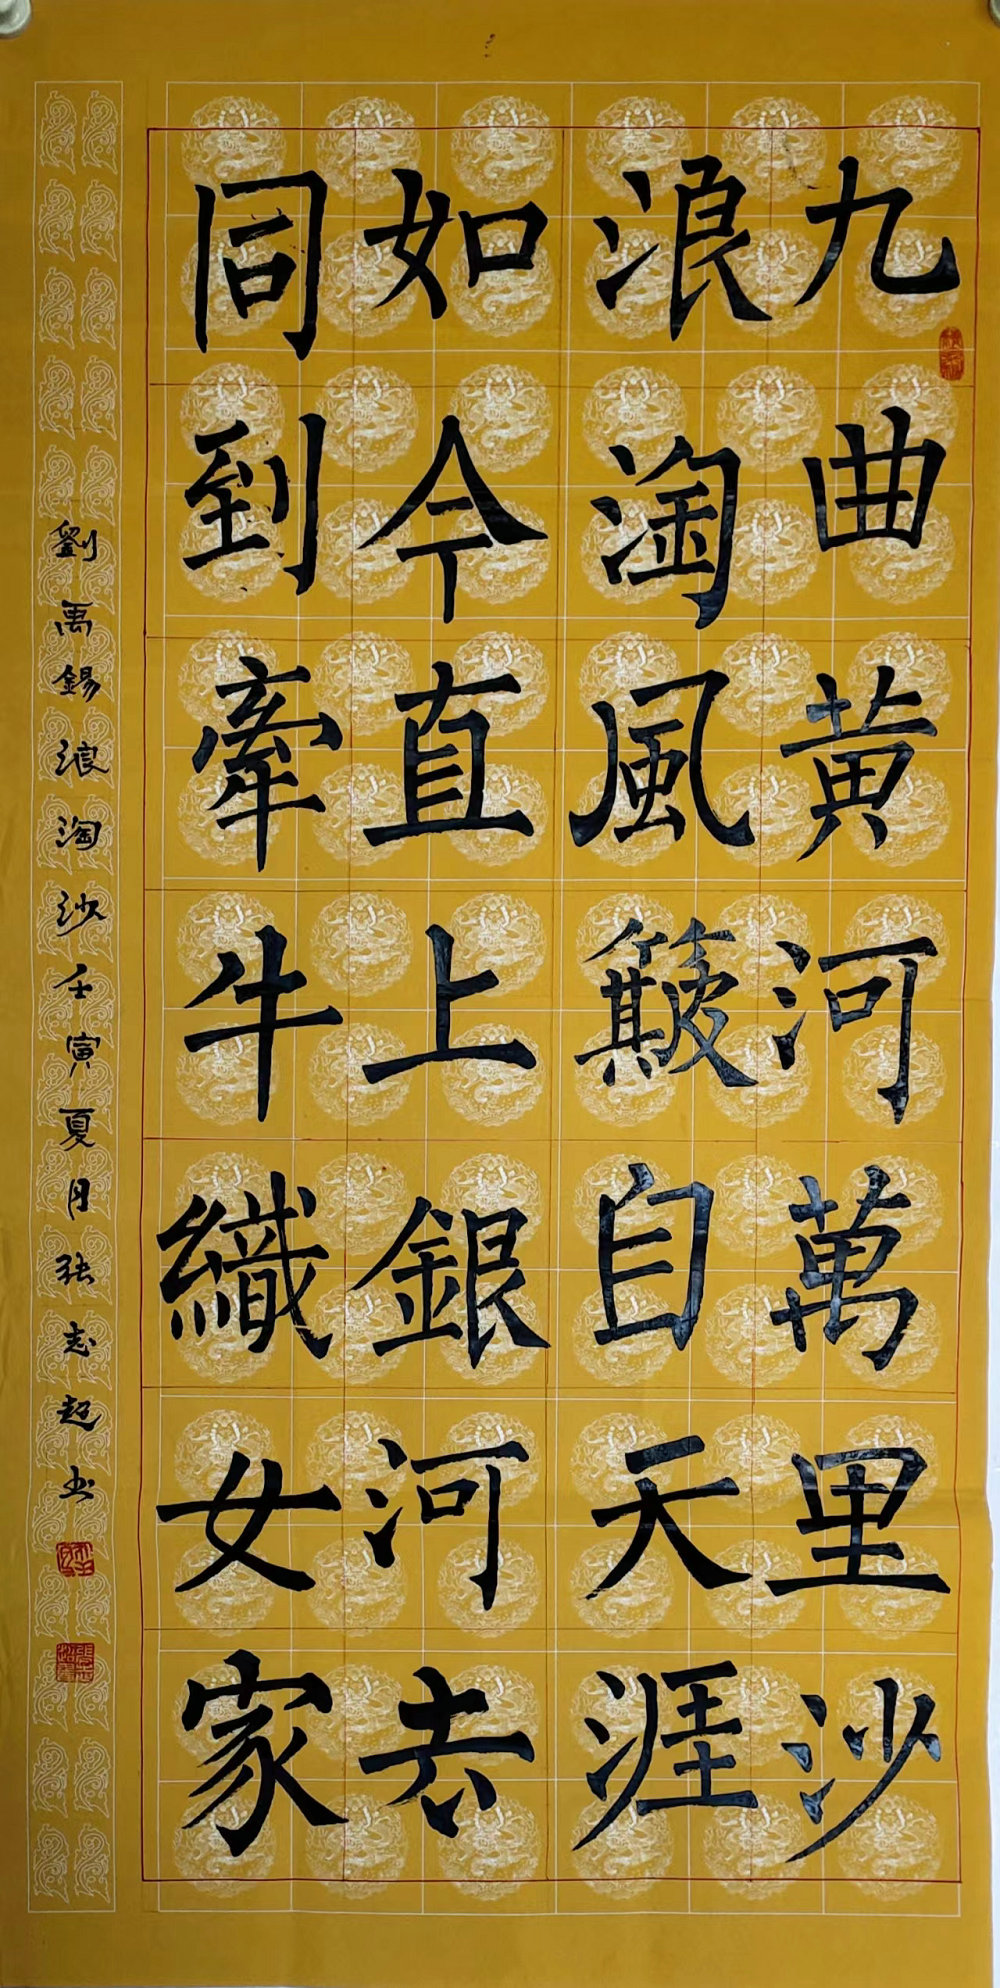 九曲黄河萬里沙
浪淘風簸自天涯
如今直上銀河去
同到牽牛織女家
劉禹錫浪淘沙壬寅夏月張志超书